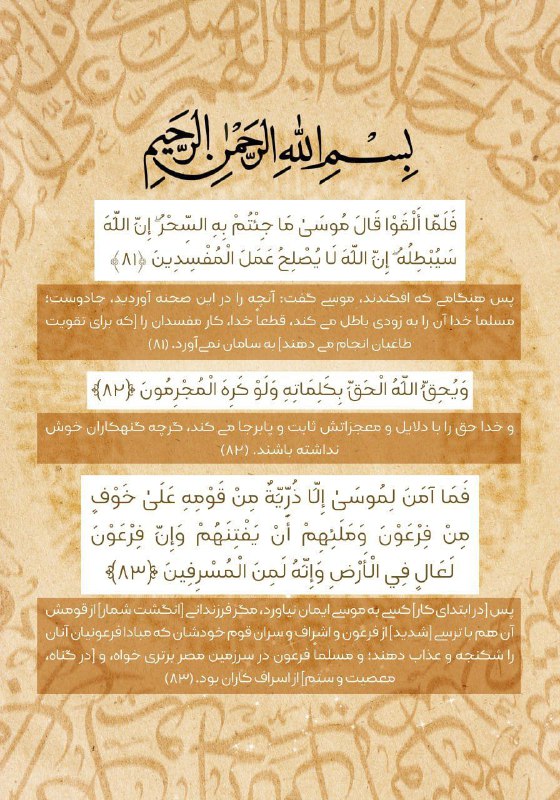 بِسْمِ اللهِ الرَّحْمٰنِ الرَّحِيمِ
فَلَمَّا أَلْقَوْا قَالَ مُوسَىٰ مَا جِئْتُمْ بِهِ السِّحْرُ ۖ إِنَّ اللَّهَ
سَيُبْطِلُهُ ۖ إِنَّ اللَّهَ لَا يُصْلِحُ عَمَلَ الْمُفْسِدِينَ ﴿٨١﴾
پس هنگامی که افکندند، موسی گفت: آنچه را در این صحنه آوردید، جادوست؛
مسلماً خدا آن را به زودی باطل می کند، قطعاً خدا، کار مفسدان را [که برای تقویت
طاغیان انجام می دهند] به سامان نمی‌آورد. (۸۱)
وَيُحِقُّ اللَّهُ الْحَقَّ بِكَلِمَاتِهِ وَلَوْ كَرِهَ الْمُجْرِمُونَ ﴿٨٢﴾
و خدا حق را با دلایل و معجزاتش ثابت و پابرجا می کند، گرچه گنهکاران خوش
نداشته باشند. (۸۲)
فَمَا آمَنَ لِمُوسَىٰ إِلَّا ذُرِّيَّةٌ مِنْ قَوْمِهِ عَلَىٰ خَوْفٍ
مِنْ فِرْعَوْنَ وَمَلَئِهِمْ أَنْ يَفْتِنَهُمْ وَإِنَّ فِرْعَوْنَ
لَعَالٍ فِي الْأَرْضِ وَإِنَّهُ لَمِنَ الْمُسْرِفِينَ ﴿٨٣﴾
پس [در ابتدای کار] کسی به موسی ایمان نیاورد، مگر فرزندانی [انگشت شمار] از قومش
آن هم با ترسی [شدید] از فرعون و اشراف و سران قوم خودشان که مبادا فرعونیان آنان
را شکنجه و عذاب دهند؛ و مسلماً فرعون در سرزمین مصر برتری خواه، و [در گناه،
معصیت و ستم] از اسراف کاران بود. (۸۳)